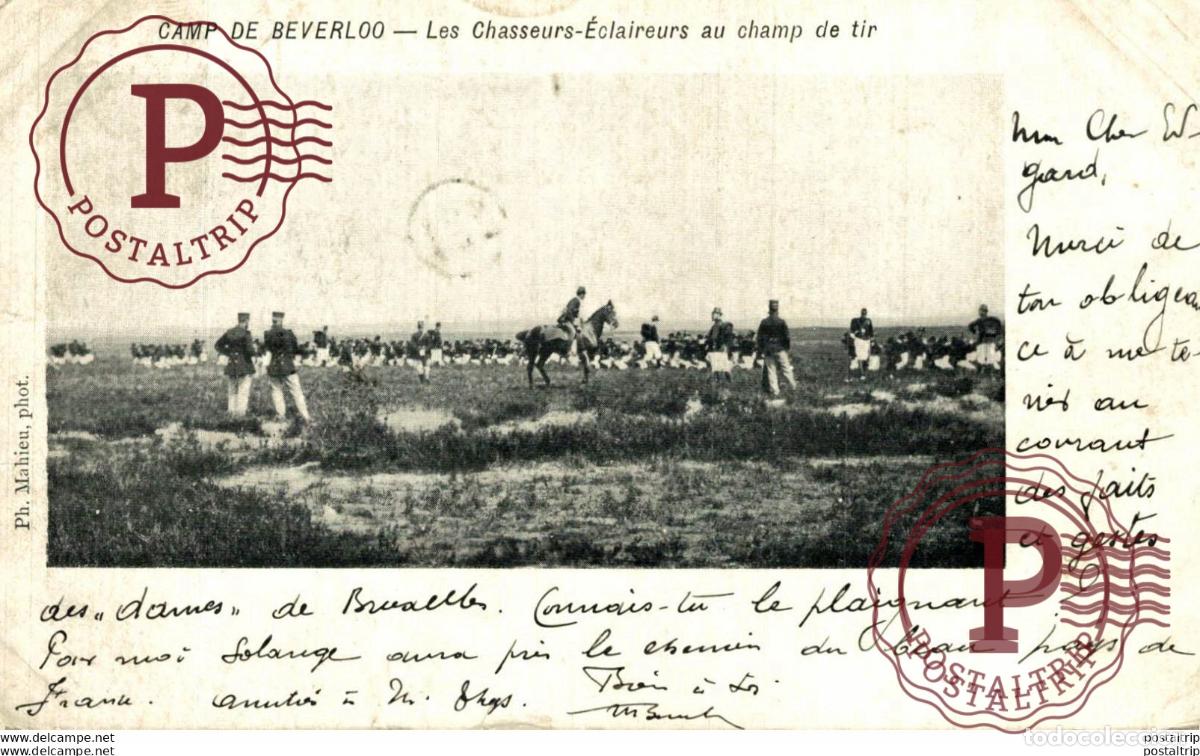 CAMP DE BEVERLOO — Les Chasseurs-Éclaireurs au champ de tir
P
POSTALTRIP
Ph. Mahieu, phot.
Mon Cher Ed-
gard,
Merci de
ton obligean
ce à me te-
nir au
courant
des faits
et gestes
des „dames" de Bruxelles. Connais-tu le plaignant ?
Pour moi Solange aura pris le chemin du beau pays de
France. Amitiés à M.
Bien à toi
P
POSTALTRIP
POSTALTRIP
www.todocoleccion.net/tienda/postaltrip
www.todocoleccion.net/tienda/postaltrip
todocoleccion
postaltrip
postaltrip